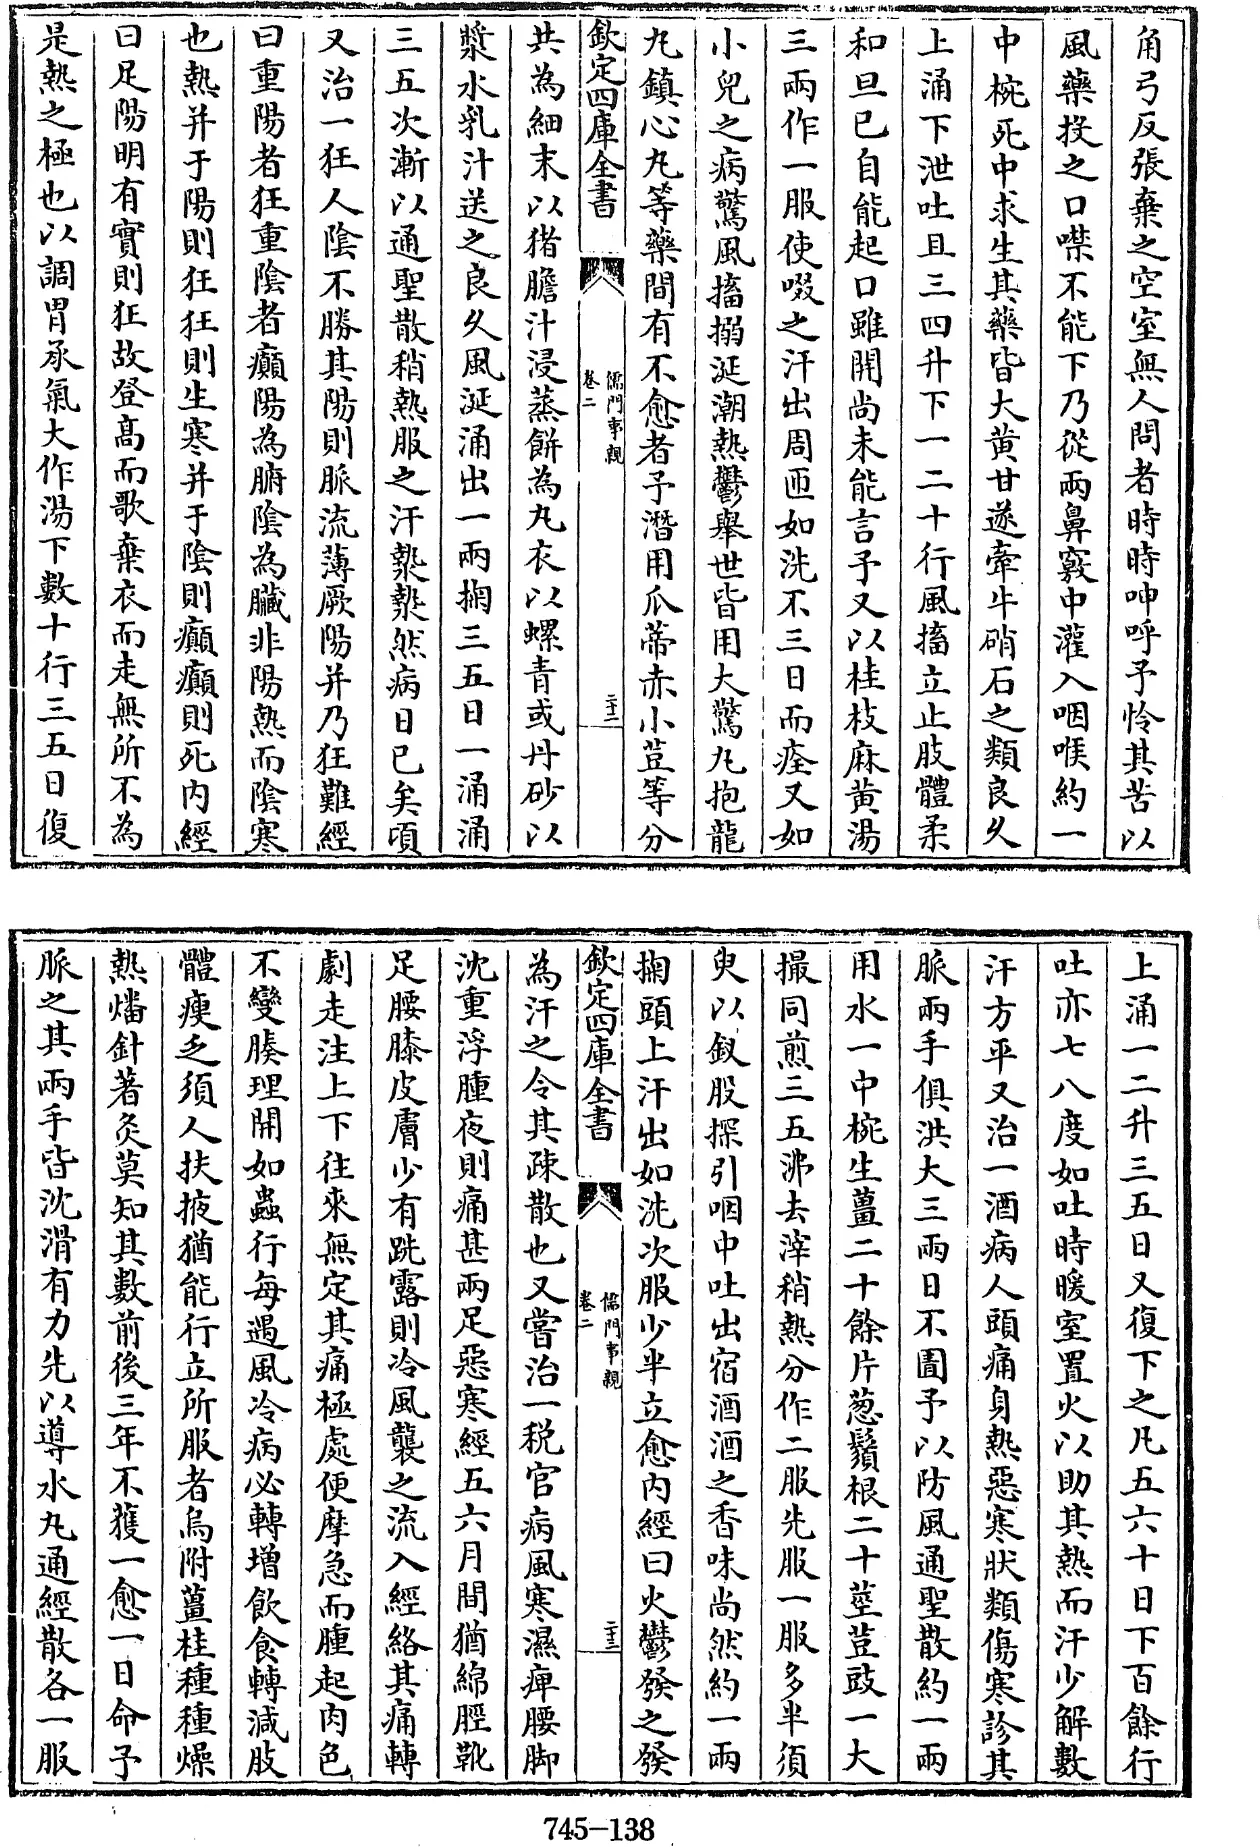 角弓反張棄之空室無人問者時時呻呼予怜其苦以
風藥投之口噤不能下乃從兩鼻竅中灌入咽喉約一
中椀死中求生其藥皆大黄甘遂牽牛硝石之類良久
上涌下泄吐且三四升下一二十行風搐立止肢體柔
和旦已自能起口雖開尚未能言予又以桂枝麻黄湯
三兩作一服使啜之汗出周匝如洗不三日而痊又如
小兒之病驚風搐搦涎潮熱鬱舉世皆用大驚丸抱龍
丸鎮心丸等藥間有不愈者予潛用瓜蒂赤小荳等分
欽定四庫全書
儒門事親
卷二
二十二
共為細末以猪膽汁浸蒸餅為丸衣以螺青或丹砂以
漿水乳汁送之良久風涎涌出一兩掬三五日一涌涌
三五次漸以通聖散稍熱服之汗漐漐然病日已矣頃
又治一狂人陰不勝其陽則脈流薄厥陽并乃狂難經
曰重陽者狂重陰者癲陽為腑陰為臟非陽熱而陰寒
也熱并于陽則狂狂則生寒并于陰則癲癲則死内經
曰足陽明有實則狂故登髙而歌棄衣而走無所不為
是熱之極也以調胃承氣大作湯下數十行三五日復
上涌一二升三五日又復下之凡五六十日下百餘行
吐亦七八度如吐時暖室置火以助其熱而汗少解數
汗方平又治一酒病人頭痛身熱惡寒狀類傷寒診其
脈兩手俱洪大三兩日不圊予以防風通聖散約一兩
用水一中椀生薑二十餘片葱鬚根二十莖荳豉一大
撮同煎三五沸去滓稍熱分作二服先服一服多半須
臾以釵股探引咽中吐出宿酒酒之香味尚然約一兩
掬頭上汗出如洗次服少半立愈内經曰火鬱發之發
欽定四庫全書
儒門事親
卷二
二十三
為汗之令其疎散也又嘗治一税官病風寒濕痺腰脚
沈重浮腫夜則痛甚兩足惡寒經五六月間猶綿脛靴
足腰膝皮膚少有跣露則冷風襲之流入經絡其痛轉
劇走注上下往來無定其痛極處便摩急而腫起肉色
不變腠理開如蟲行每遇風冷病必轉增飲食轉減肢
體瘦乏須人扶掖猶能行立所服者烏附薑桂種種燥
熱燔針著灸莫知其數前後三年不獲一愈一日命予
脈之其兩手皆沈滑有力先以導水丸通經散各一服
745-138